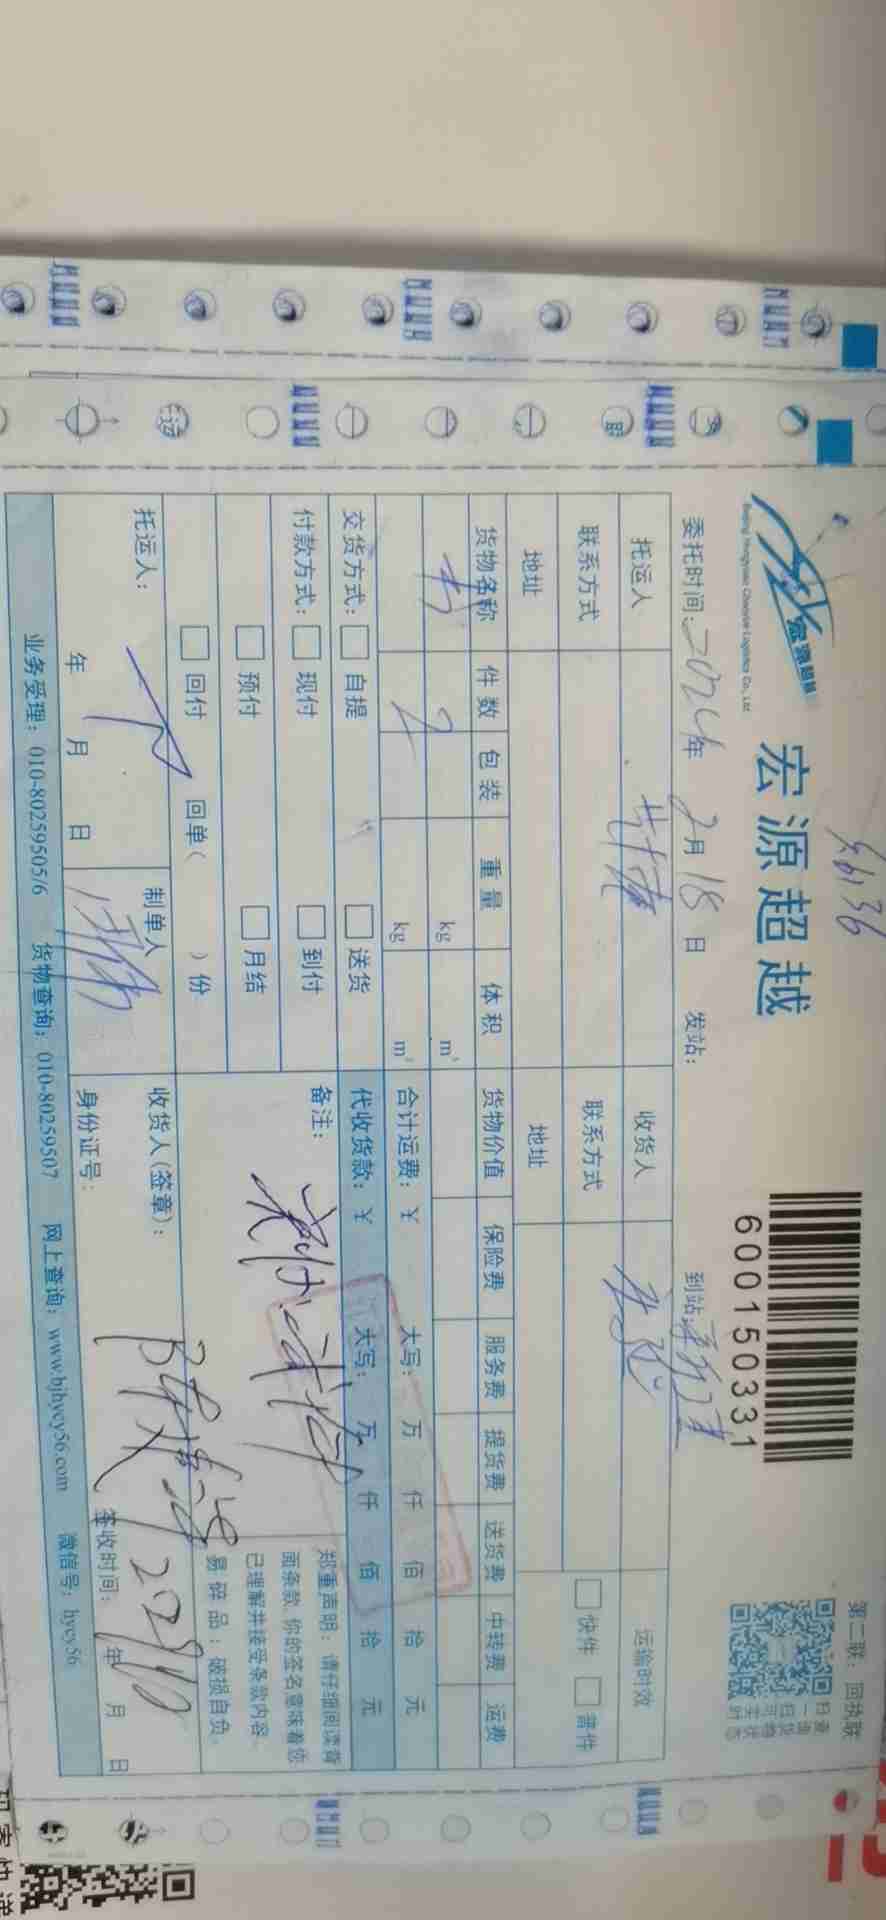 第二联：回执联
宏源超越
宏源超越
Beijing Hongyuan Chaoyue Logistics Co., Ltd
600150331
委托时间：2024年 2月18日 发站： 到站：
托运人 收货人 运输时效
联系方式 联系方式 快件 普件
地址 地址
货物名称 件数 包装 重量 体积 货物价值 保险费 服务费 提货费 送货费 中转费 运费
书 2 kg m³
kg m³ 合计运费：￥ 大写： 万 仟 佰 拾 元
交货方式： 自提 送货 代收货款：￥ 大写： 万 仟 佰 拾 元
付款方式： 现付 到付 备注：
预付 月结
回付 回单（ ）份
郑重声明：请仔细阅读背
面条款，你的签名意味着您
已理解并接受条款内容。
易碎品：破损自负。
托运人： 制单人 收货人(签章)：
年 月 日 身份证号： 签收时间： 年 月 日
业务受理：010-80259505/6 货物查询：010-80259507 网上查询：www.bjhycy56.com 微信号：hycy56